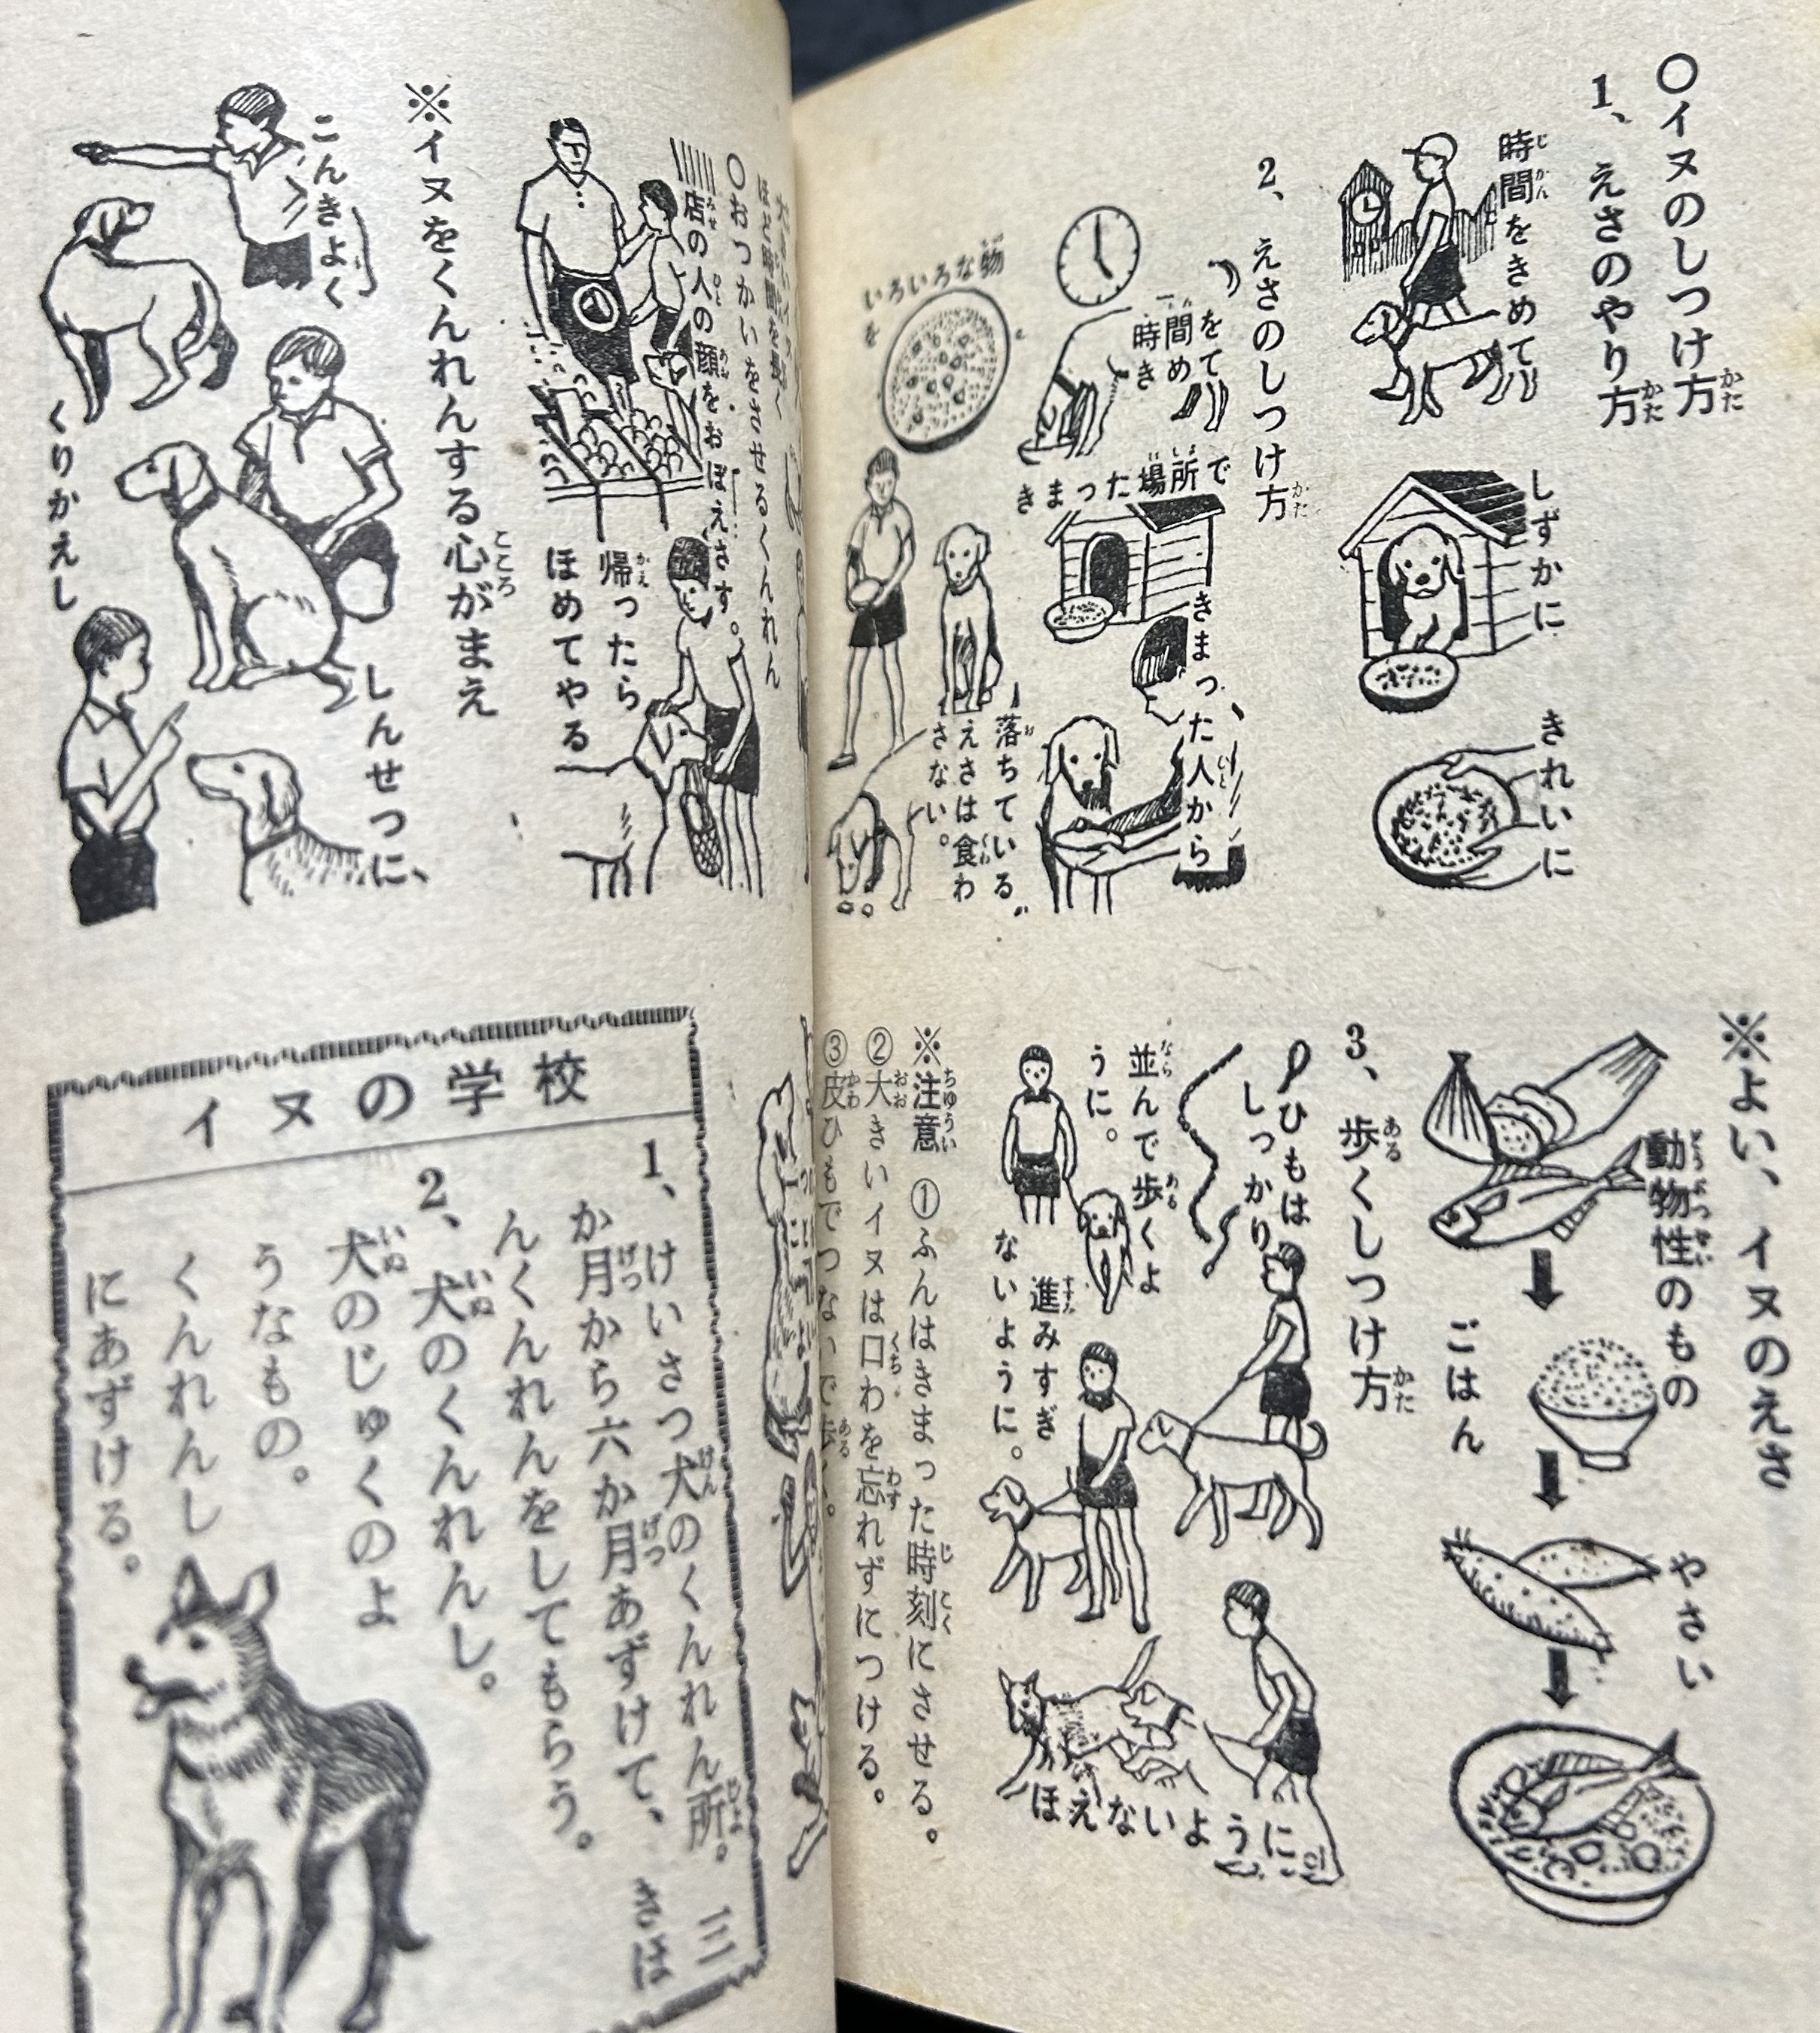 ○イヌのしつけ方
1、えさのやり方
時間をきめて
しずかに
きれいに
2、えさのしつけ方
時間をきめて
きまった場所で
きまった人から
いろいろな物を
落ちている
えさは食わ
さない。
※よい、イヌのえさ
動物性のもの
ごはん
やさい
3、歩くしつけ方
ひもは
しっかり
並んで歩くよ
うに。
進みすぎ
ないように。
ほえないように
※注意 ①ふんはきまった時刻にさせる。
②大きいイヌは口わを忘れずにつける。
③皮ひもでつないで歩く。
○おつかいをさせるくんれん
店の人の顔をおぼえさす。
帰ったら
ほめてやる
※イヌをくんれんする心がまえ
こんきよく
しんせつに、
くりかえし
イヌの学校
1、けいさつ犬のくんれん所。三
か月から六か月あずけて、きほ
んくんれんをしてもらう。
2、犬のくんれんし。
犬のじゅくのよ
うなもの。
くんれんし
にあずける。